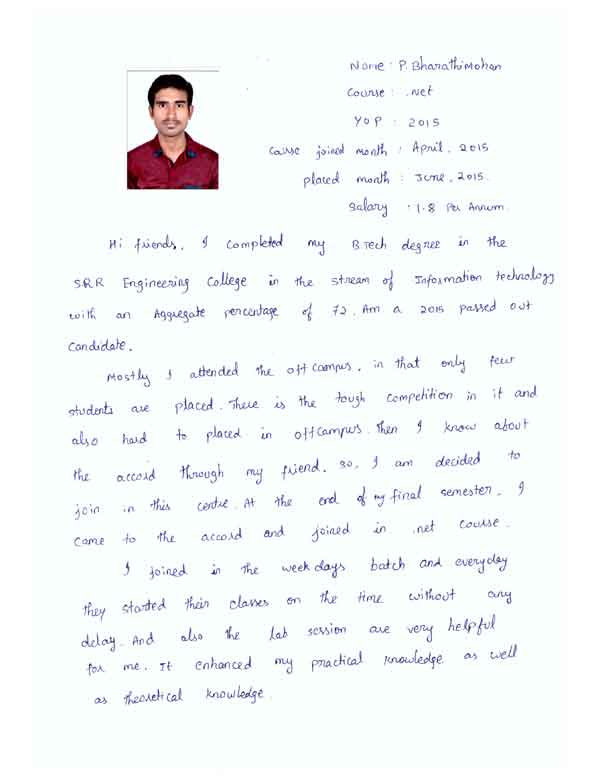 Name : P. BharathiMohan
Course : .Net
YOP : 2015
Cause joined month : April, 2015
placed month : June, 2015.
Salary : 1.8 Per Annum.
Hi friends, I completed my B.Tech degree in the
S.R.R Engineering College in the stream of Information technology
with an Aggregate percentage of 72. Am a 2015 passed out
Candidate.
Mostly I attended the offcampus, in that only few
students are placed. There is the tough competition in it and
also hard to placed in offcampus. Then I know about
the accord through my friend. So, I am decided to
join in this centre. At the end of my final semester, I
came to the accord and joined in .net course.
I joined in the week days batch and everyday
they started their classes on the time without any
delay. And also the lab session are very helpful
for me. It enhanced my practical knowledge as well
as theoretical knowledge.